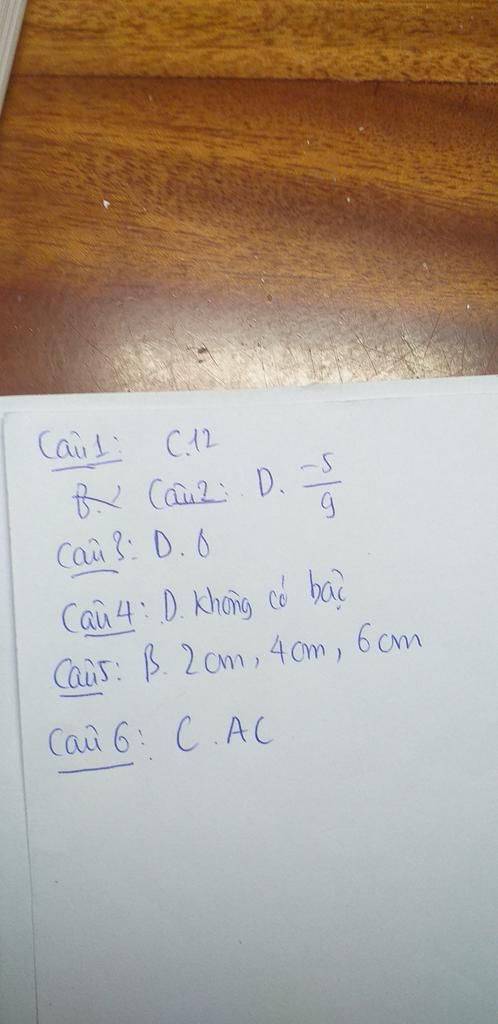 Câu 1: C. 12
B. Câu 2: D. -5/9
Câu 3: D. 6
Câu 4: D. Không có bậc
Câu 5: B. 2cm, 4cm, 6cm
Câu 6: C. AC